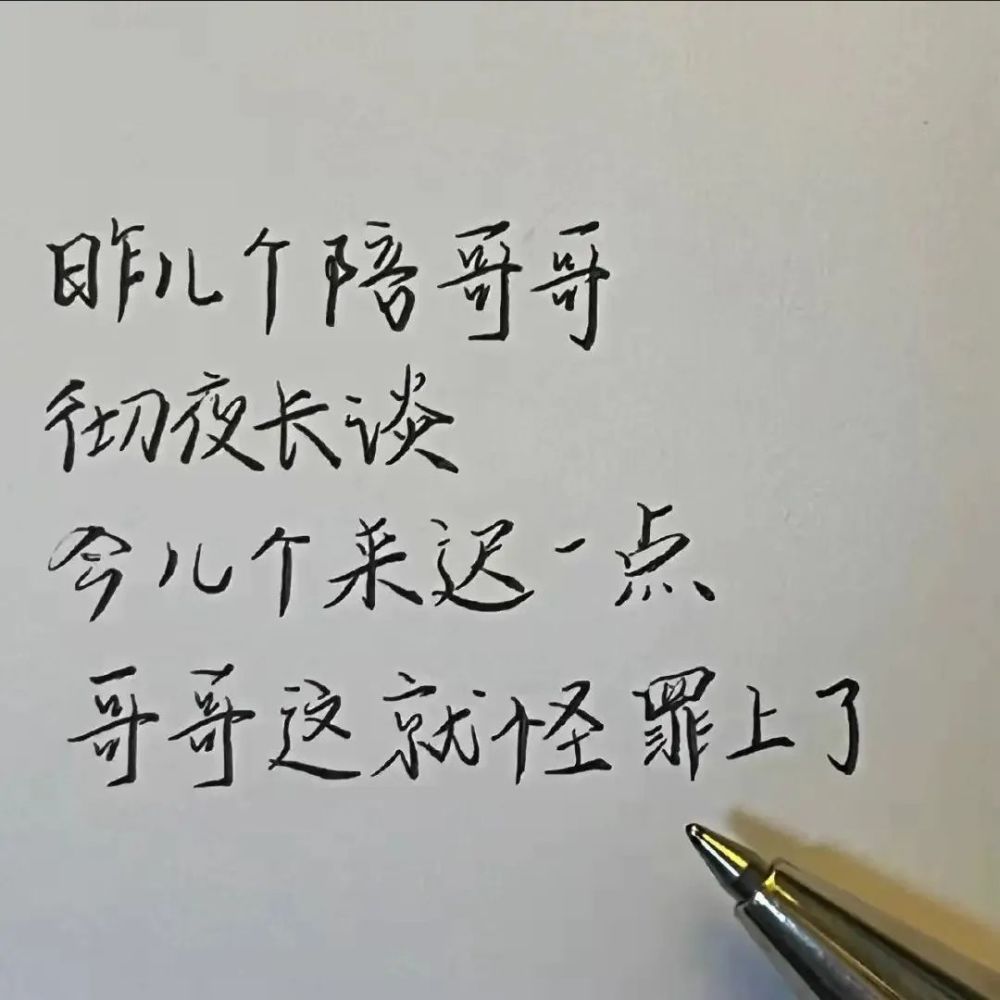 昨儿个陪哥哥
彻夜长谈
今儿个来迟一点
哥哥这就怪罪上了